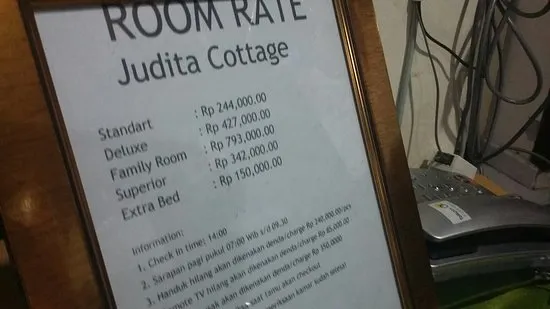 ROOM RATE
Judita Cottage
Standart : Rp 244,000.00
Deluxe : Rp 427,000.00
Family Room : Rp 793,000.00
Superior : Rp 342,000.00
Extra Bed : Rp 150,000.00
Information:
1. Check in time: 14:00
2. Sarapan pagi pukul 07:00 Wib s/d 09.30
3. Handuk hilang akan dikenakan denda/charge Rp 240,000.00/pcs
TV hilang akan dikenakan denda/charge Rp
akan dikenakan denda/charge Rp
saat tamu akan checkout
kamar sudah selesai